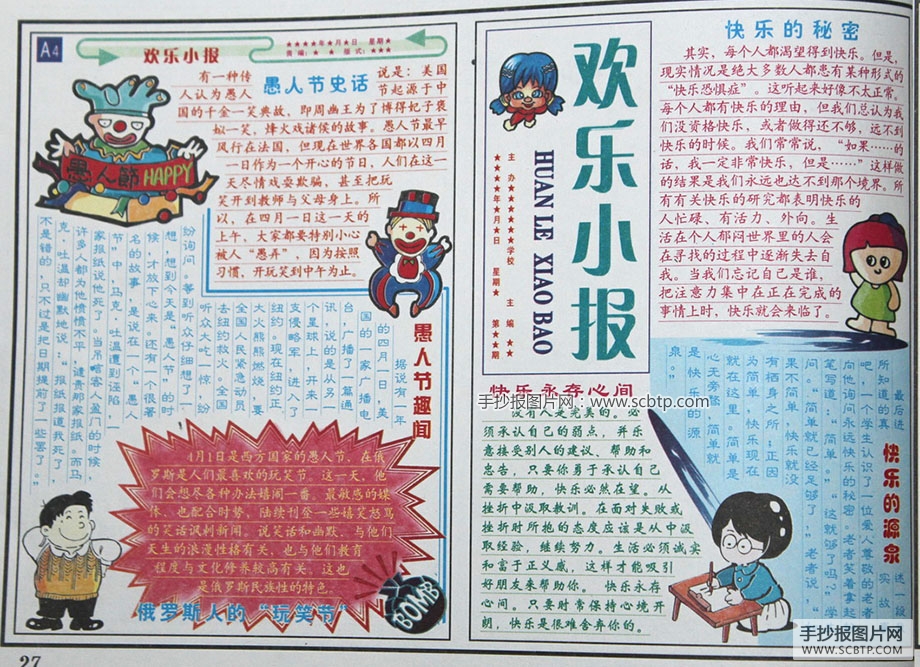 A4
欢乐小报
★★★★年★月★日 星期★
责编：★ ★ 版式：★★★
愚人节史话
有一种传
人认为愚人
国的千金一笑典故，即周幽王为了博得妃子褒
姒一笑，烽火戏诸侯的故事。愚人节最早
风行在法国，但现在世界各国都以四月
一日作为一个开心的节日，人们在这一
天尽情戏耍欺骗，甚至把玩
笑开到教师与父母身上。所
以，在四月一日这一天的
上午，大家都要特别小心
被人“愚弄”，因为按照
习惯，开玩笑到中午为止。
说是：美国
节起源于中
愚人節 HAPPY
愚人节趣闻
据说有一年
的四月一日，美
国的一家广播电
台，广播了一篇通
讯，说的是从另一
个星球上，开来了一
支侵略军，进入了
纽约。现在纽约正
大火熊熊燃烧，要
全国人民紧急动员
去纽约救火。全国
听众大吃一惊，纷
纷询问。等到听众仔细想了一
想，想到今天是“愚人节”的时
候，才放下心来。还有一个很著
名的故事，是说在一个“愚人
节”中，马克·吐温遭到诬陷，一
家报纸说他死了。当吊客人盈门的时候，
许多人都为他愤愤不平，谴责那家报纸。而马
克·吐温却幽默地说：“报纸报道我死了，
不是错的，只不过是把日期提前了一些罢了。”
4月1日是西方国家的愚人节，在俄
罗斯是人们最喜欢的玩笑节。这一天，他
们会想尽各种办法嬉闹一番。最敏感的媒
体，也配合时势，陆续刊登一些嬉笑怒骂
的笑话讽刺新闻。说笑话和幽默，与他们
天生的浪漫性格有关，也与他们教育
程度与文化修养较高有关。这也
是俄罗斯民族性的特色。
俄罗斯人的“玩笑节”
BOMB
27
欢乐小报
HUAN LE XIAO BAO
主 办★★★★★★学校 主 编 ★★
★★★★年★月★日 星期★ 第★★期
快乐的秘密
其实，每个人都渴望得到快乐。但是，
现实情况是绝大多数人都患有某种形式的
“快乐恐惧症”。这听起来好像不太正常，
每个人都有快乐的理由，但我们总认为我
们没资格快乐，或者做得还不够，远不到
快乐的时候。我们常常说，“如果……的
话，我一定非常快乐，但是……”这样做
的结果是我们永远也达不到那个境界。所
有有关快乐的研究都表明快乐的
人忙碌、有活力、外向。生
活在个人郁闷世界里的人会
在寻找的过程中逐渐失去自
我。当我们忘记自己是谁，
把注意力集中在正在完成的
事情上时，快乐就会来临了。
快乐永存心间
没有人是完美的。必
须承认自己的弱点，并乐
意接受别人的建议、帮助和
忠告，只要你勇于承认自己
需要帮助，快乐必然在望。从
挫折中汲取教训。在面对失败或
挫折时所抱的态度应该是从中汲
取经验，继续努力。生活必须诚实
和富于正义感，这样才能吸引
好朋友来帮助你。 快乐永存
心间。只要时常保持心境开
朗，快乐是很难舍弃你的。
快乐的源泉
最后讲一段
所知道的真实故
吧：一个学生认识了一位爱人尊敬的老者
向他询问永远快乐的秘密。老者笑着拿起
笔写道：“简单。”“这就够了吗？”学生
问。“简单就已经足够了，”老者说，“如
果不简单，快乐就没
有栖身之所。正因
为简单，快乐现在
就在这里。简单是
心无旁骛，简单就
是快乐的源
泉。”
手抄报图片网：www.scbtp.com
手抄报图片网
WWW.SCBTP.COM